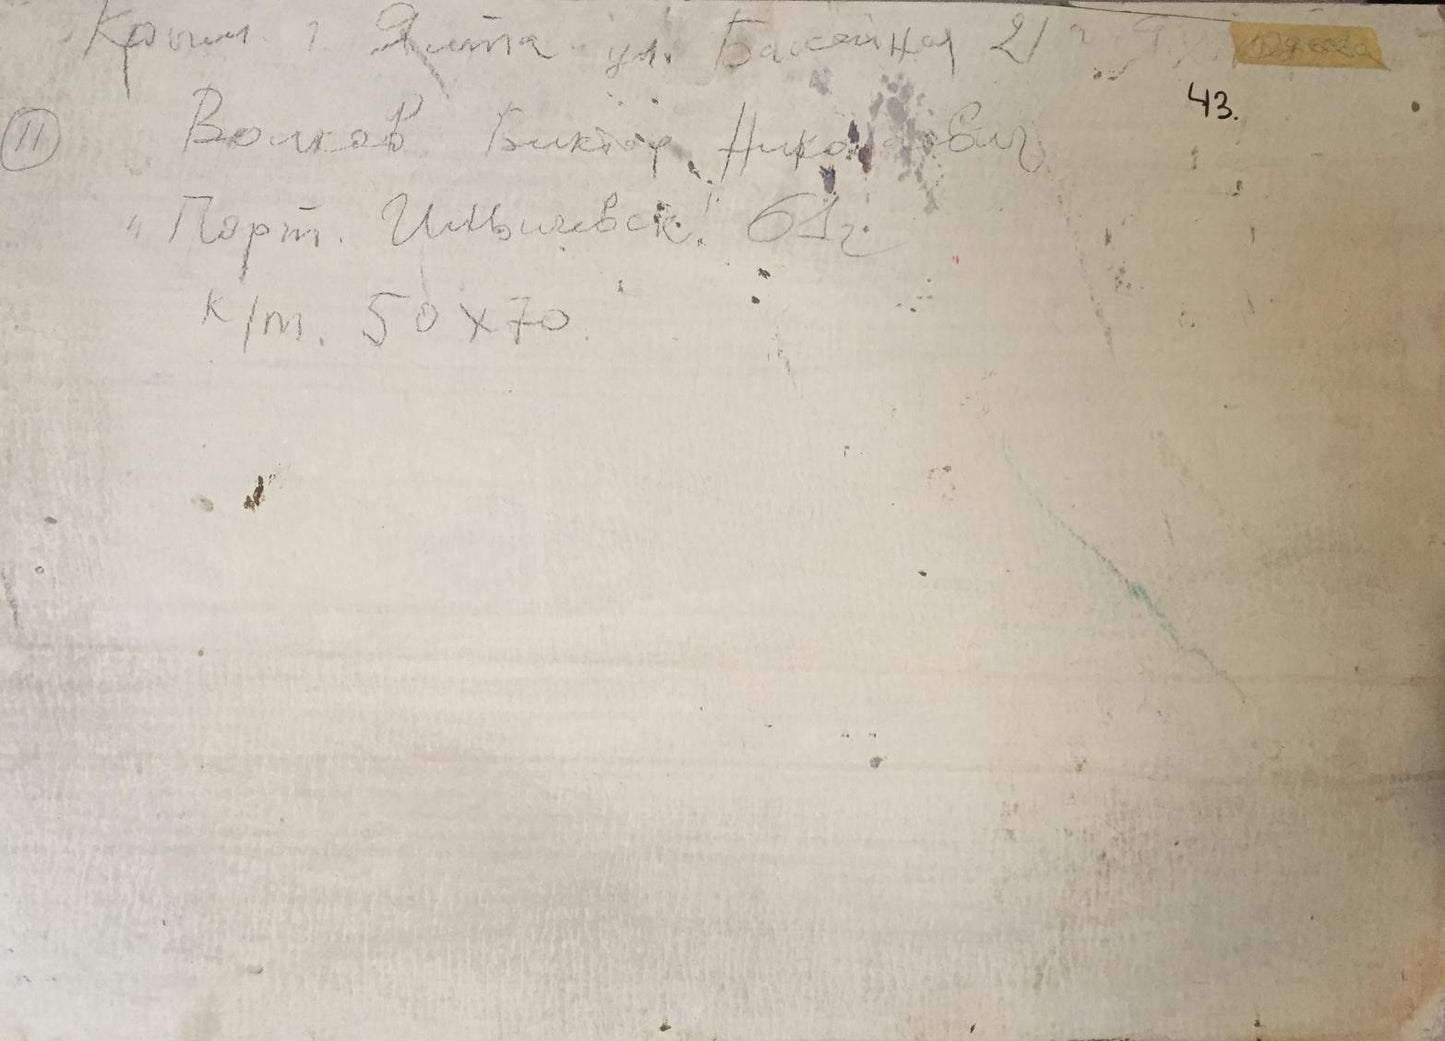 Крым г Ялта ул. Бассейная 21
43.
11 Волков Виктор Николаевич
"Порт. Ильичевск" 61г.
к/т. 50x70